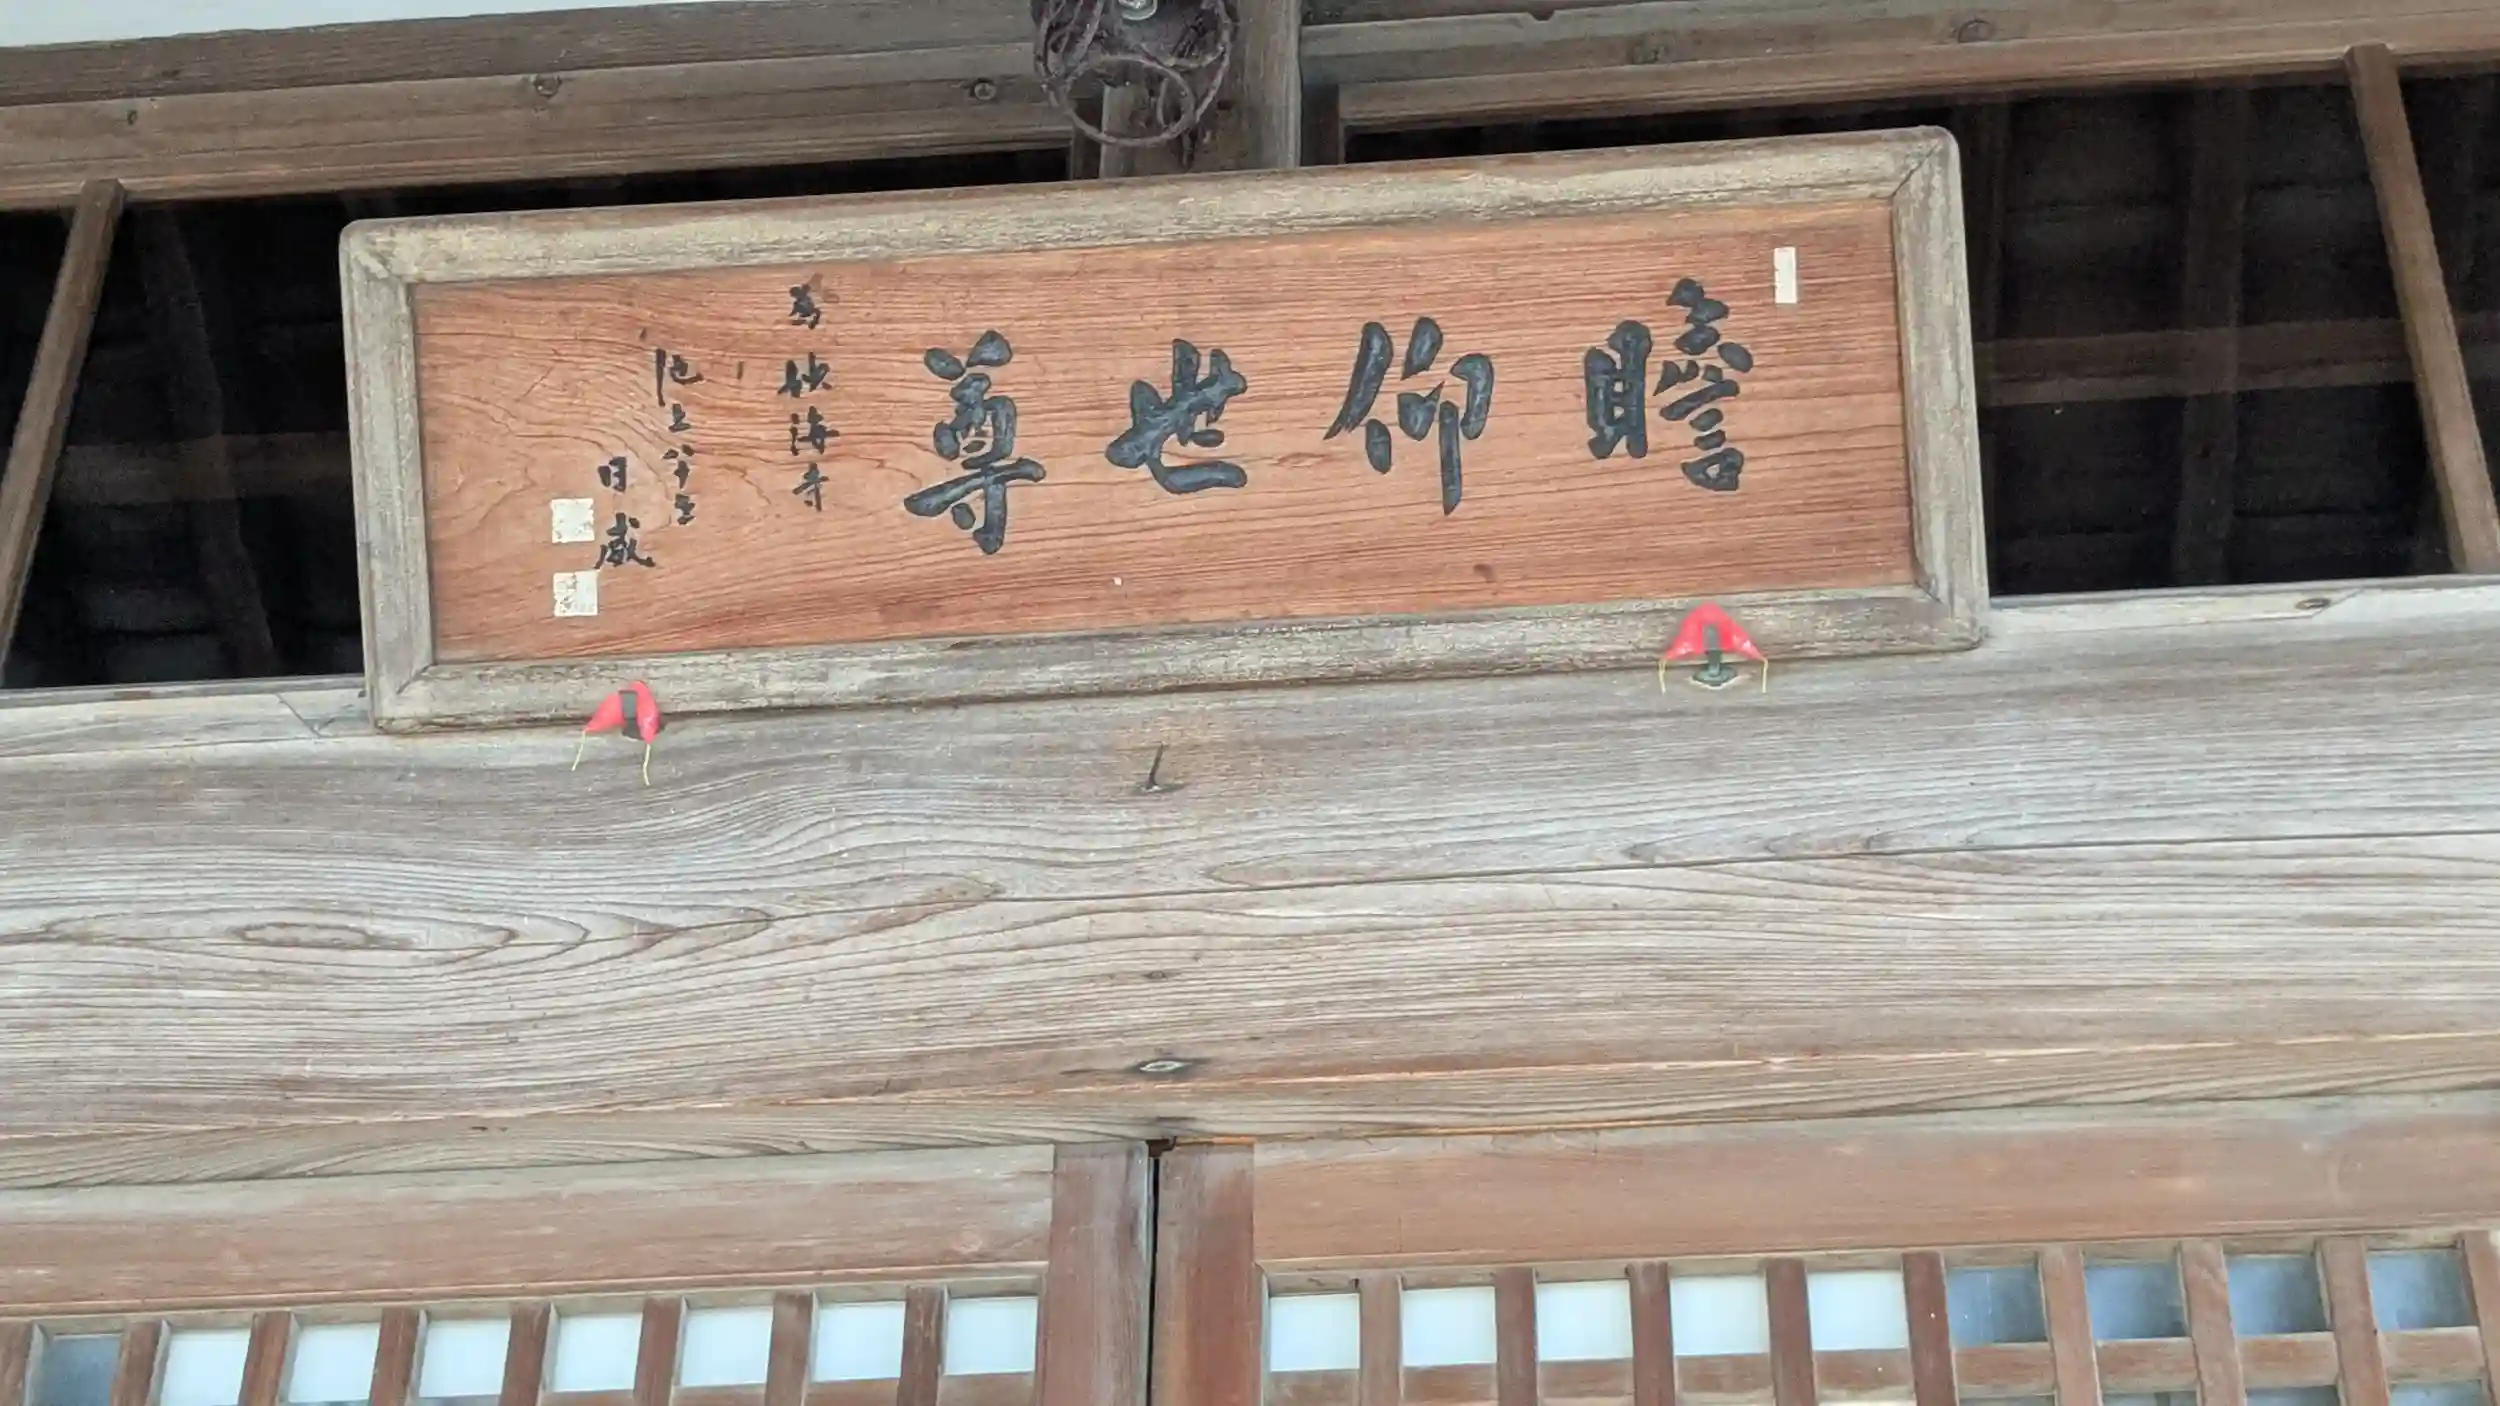 瞻仰世尊
為 妙海寺
池上八十二
日威